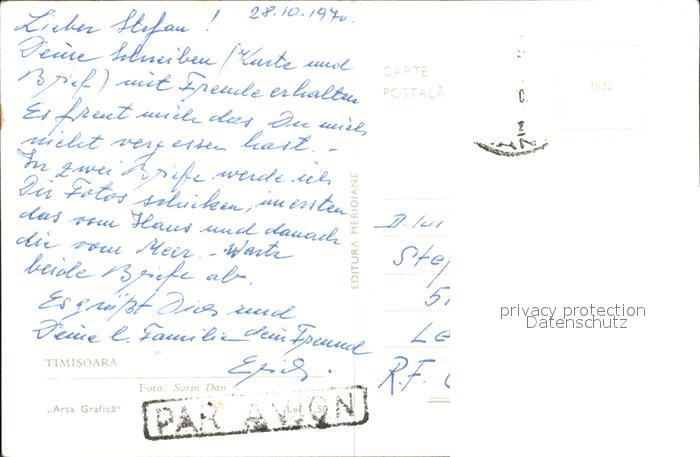 28.10.1970.
Lieber Stefan!
Deine Schreiben (Karte und
Brief) mit Freude erhalten
Es freut mich das Du mich
nicht vergessen hast. -
In zwei Briefe werde ich
Dir Fotos schicken, im ersten
das vom Haus und danach
die vom Meer. - Warte
beide Briefe ab.
Es grüßt Dich und
Deine l. Familie dein Freund
Erich.
TIMIȘOARA
Foto: Sorin Dan
„Arta Grafică“
Lei 1,50
PAR AVION
EDITURA MERIDIANE
CARTE
POSTALĂ
1932
D-lui
Ste
5
Le
R.F.
privacy protection
Datenschutz